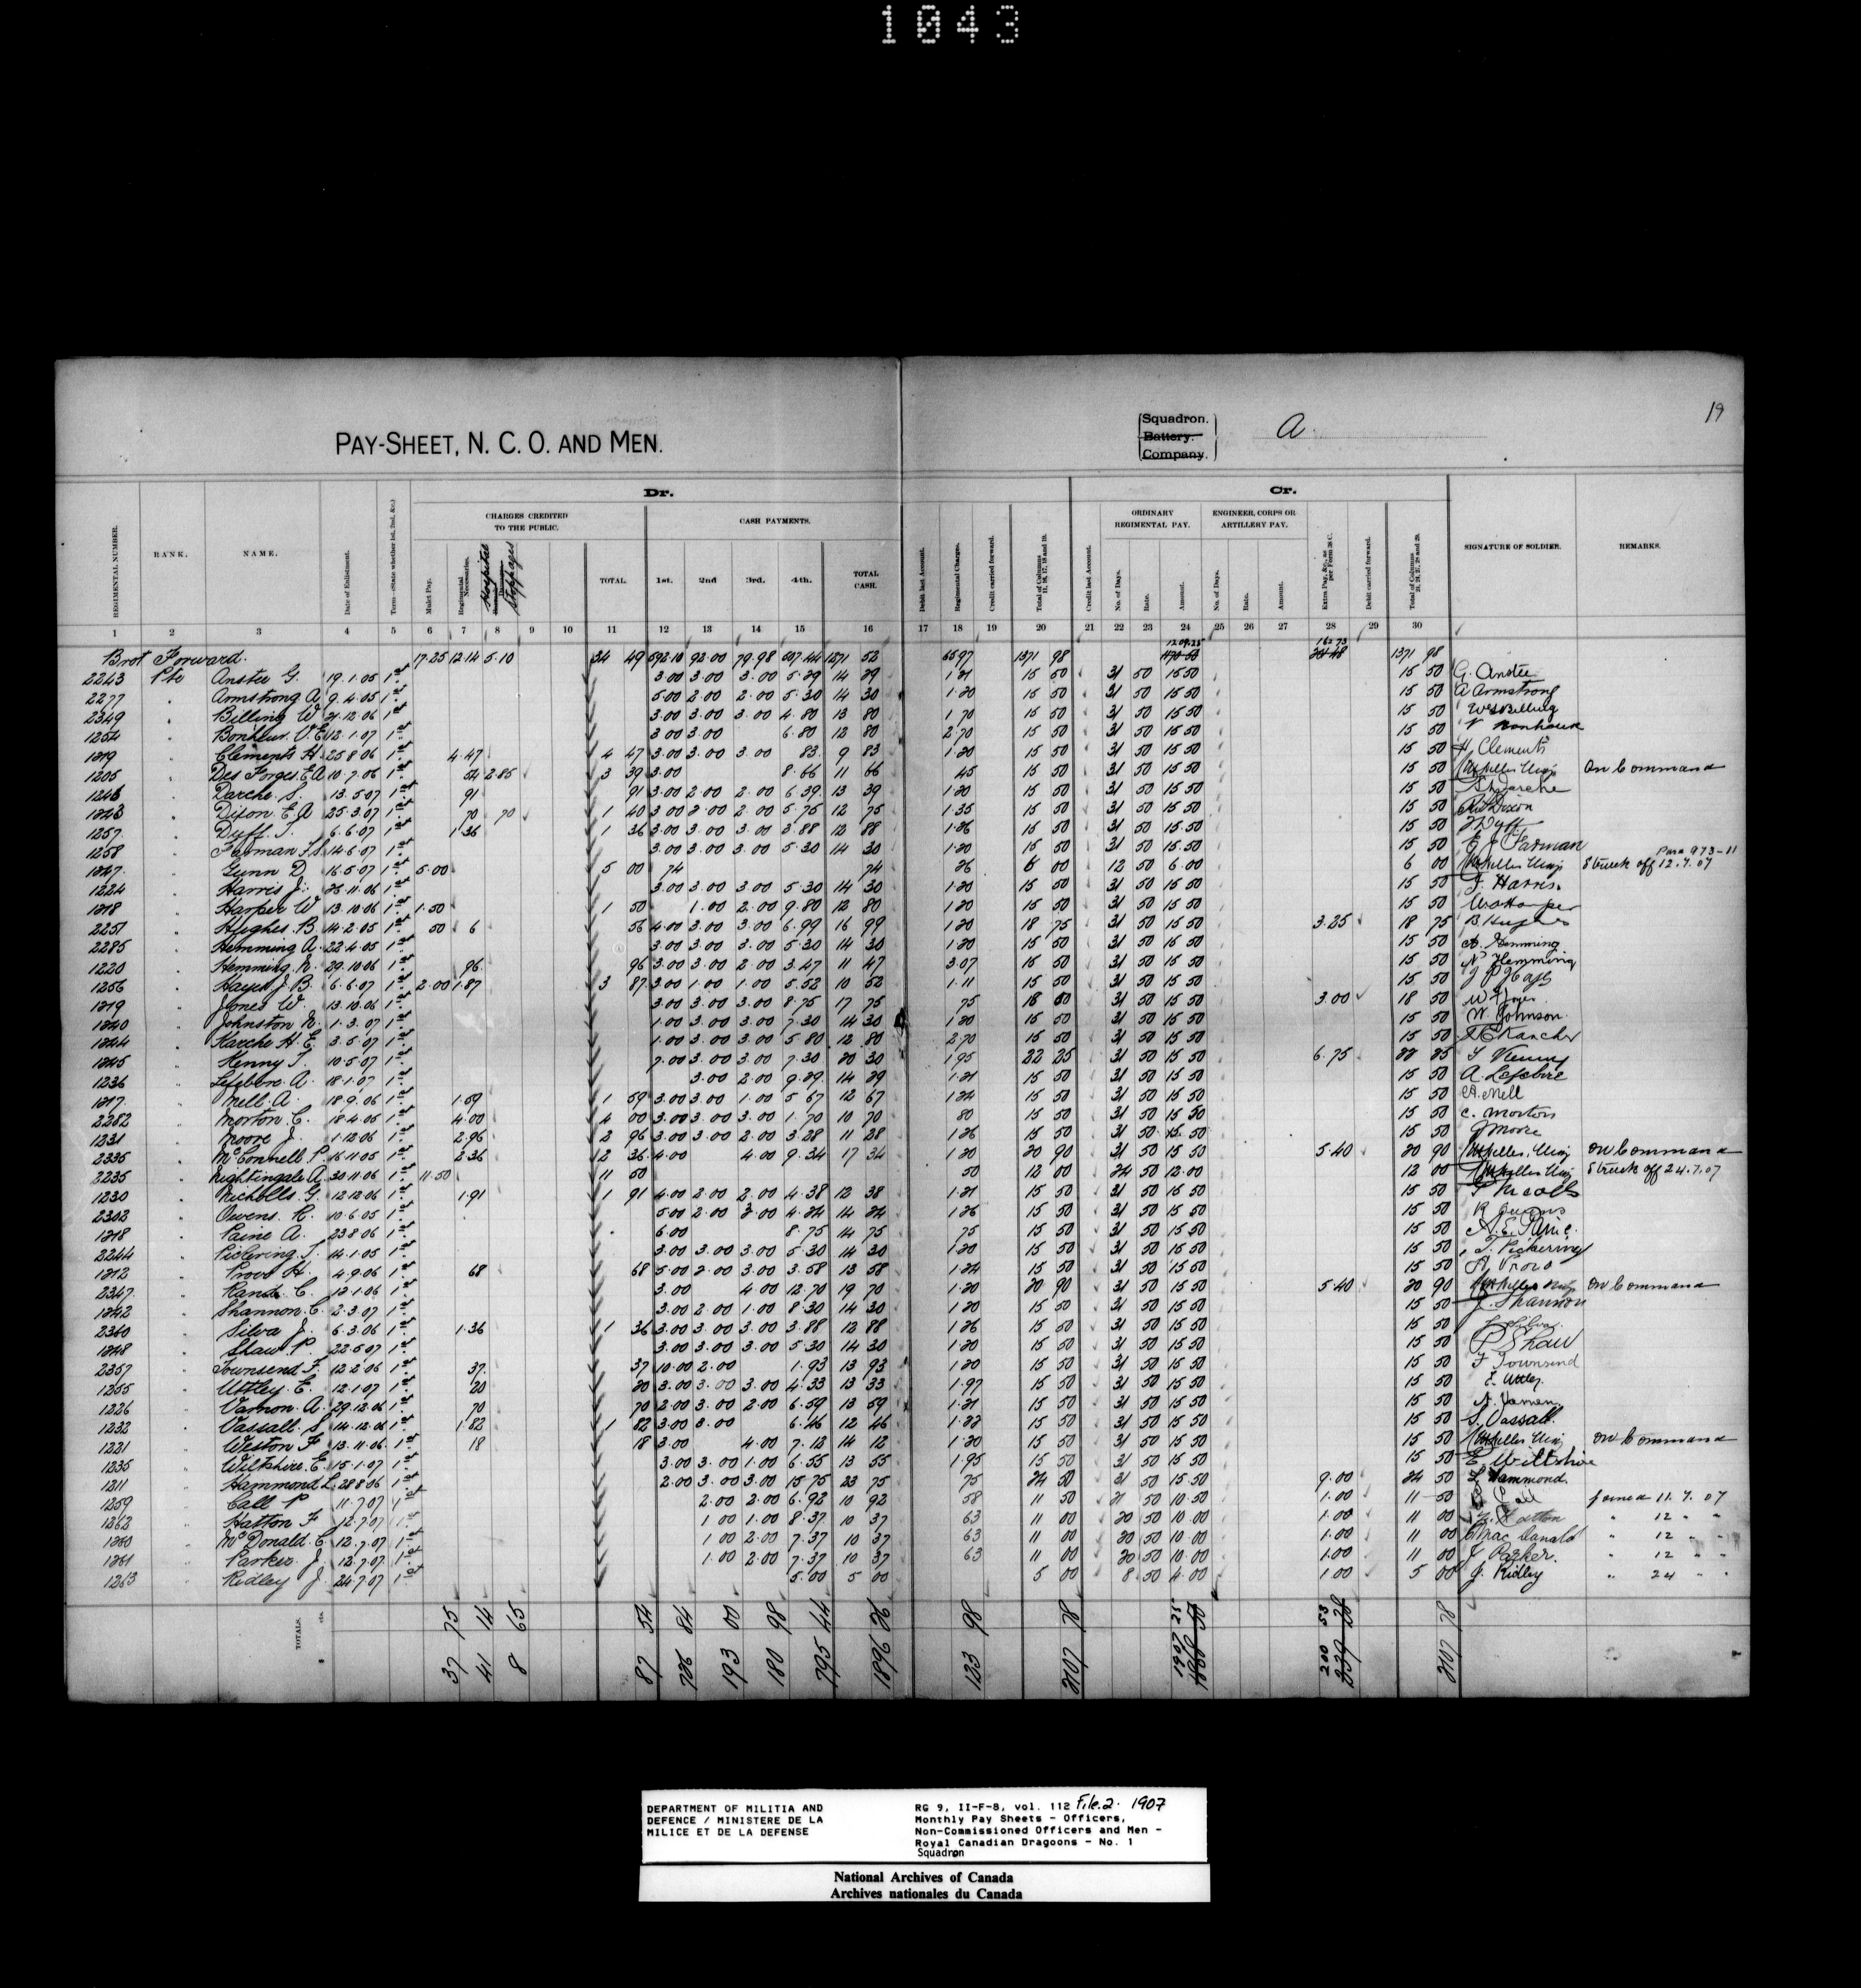 1043
19
PAY-SHEET, N. C. O. AND MEN.
Squadron.
Battery.
Company.
A.
Dr.
Cr.
CHARGES CREDITED TO THE PUBLIC.
CASH PAYMENTS.
ORDINARY REGIMENTAL PAY.
ENGINEER, CORPS OR ARTILLERY PAY.
REGIMENTAL NUMBER. RANK. NAME. Date of Enlistment. Term—State whether 1st, 2nd, &c. Mulct Pay. Regimental Necessaries. Hospital Stoppages TOTAL. 1st. 2nd 3rd. 4th. TOTAL CASH. Debit last Account. Regimental Charges. Credit carried forward. Total of Columns 11, 16, 17, 18 and 19. Credit last Account. No. of Days. Rate. Amount. No. of Days. Rate. Amount. Extra Pay, &c., as per Form 28 C. Debit carried forward. Total of Columns 21, 24, 27, 28 and 29. SIGNATURE OF SOLDIER. REMARKS.
1 2 3 4 5 6 7 8 9 10 11 12 13 14 15 16 17 18 19 20 21 22 23 24 25 26 27 28 29 30
Brot Forward. 17.25 12.14 5.10 34 49 592.10 92.00 79.98 507.44 1271 52 65 97 1371 98 1209.25 1371 98
2243 Pte Anstee G. 19.1.05 1st 3.00 3.00 3.00 5.29 14 29 1.21 15 50 31 50 15 50 15 50 G. Anstee
2277 Armstrong A. 9.4.05 1st 5.00 2.00 2.00 5.30 14 30 1.20 15 50 31 50 15 50 15 50 A Armstrong
2349 Billing W 21.12.06 1st 3.00 3.00 3.00 4.80 13 80 1 70 15 50 31 50 15 50 15 50 W Billing
1254 Bonheur. V.E. 12.1.07 1st 3.00 3.00 6.80 12 80 2.70 15 50 31 50 15 50 15 50
1219 Clements H. 25.8.06 1st 4.47 4 47 3.00 3.00 3.00 83 9 83 1.20 15 50 31 50 15 50 15 50 H. Clements
1205 Des Forges. E.A. 10.7.06 1st 54 2.85 3 39 3.00 8.66 11 66 45 15 50 31 50 15 50 15 50 On Command
1246 Darche. S. 13.5.07 1st 91 91 3.00 2.00 2.00 6.39 13 39 1.20 15 50 31 50 15 50 15 50 Darche
1243 Dixon. E.A 25.3.07 1st 70 70 1 40 3.00 2.00 2.00 5.75 12 75 1.35 15 50 31 50 15 50 15 50 Dixon
1257. Duff. T. 6.6.07 1st 1.36 1 36 3.00 3.00 3.00 3.88 12 88 1.26 15 50 31 50 15.50 15 50 T Duff
1258 14.6.07 1st 3.00 3.00 3.00 5.30 14 30 1.20 15 50 31 50 15.50 15 50
1247. Gunn D. 16.5.07 1st 5.00 5 00 74 74 26 6 00 12 50 6.00 6 00 Para 973-11 Struck off 12.7.07
1224 Harris J. 26.11.06 1st 3.00 3.00 3.00 5.30 14 30 1.20 15 50 31 50 15 50 15 50 J. Harris.
1218 Harper W. 13.10.06 1st 1.50 1 50 1.00 2.00 9.80 12 80 1.20 15 50 31 50 15 50 15 50 Harper
2251 Hughes. B. 14.2.05 1st 50 6 56 4.00 3.00 3.00 6.99 16 99 1.20 18 75 31 50 15 50 3.25 18 75 B Hughes
2285 Hemming A. 22.4.05 1st 3.00 3.00 3.00 5.30 14 30 1.20 15 50 31 50 15 50 15 50 A. Hemming
1220 Hemming. N. 29.10.06 1st 96 96 3.00 3.00 2.00 3.47 11 47 3.07 15 50 31 50 15 50 15 50 N Hemming
1256 Hayes J.B. 6.6.07 1st 2.00 1.87 3 87 3.00 1.00 1.00 5.52 10 52 1.11 15 50 31 50 15 50 15 50
1219 Jones W. 13.10.06 1st 3.00 3.00 3.00 8.75 17 75 75 18 50 31 50 15 50 3.00 18 50 W Jones
1240 Johnston N. 1.3.07 1st 1.00 3.00 3.00 7.30 14 30 1.20 15 50 31 50 15 50 15 50 W. Johnson.
1244 Karche H.E. 3.5.07 1st 1.00 3.00 3.00 5.80 12 80 2.70 15 50 31 50 15 50 15 50
1245 Kenny T. 10.5.07 1st 7.00 3.00 3.00 7.30 20 30 1.95 22 25 31 50 15 50 6.75 T Kenny
1236 Lefebvre. A. 18.1.07 1st 3.00 2.00 9.29 14 29 1.21 15 50 31 50 15 50 15 50 A. Lefebvre
1217. Mell. A. 18.9.06 1st 1.59 1 59 3.00 3.00 1.00 5 67 12 67 1.24 15 50 31 50 15 50 15 50 A. Mell
2282 Morton C. 18.4.05 1st 4.00 4 00 3.00 3.00 3.00 1.70 10 70 80 15 50 31 50 15 50 15 50 C. Morton
1231 Moore J. 1.12.06 1st 2.96 2 96 3.00 3.00 2.00 3.28 11 28 1.26 15 50 31 50 15.50 15 50 J Moore
2335 McConnell P. 16.11.05 1st 2.36 2 36 4.00 4.00 9.34 17 34 1.20 20 90 31 50 15 50 5.40 20 90 On Command
2235 Nightingale A. 30.11.06 1st 11.50 11 50 50 12 00 24 50 12.00 12 00 Struck off 24.7.07
1230 Nicholls. G. 12.12.06 1st 1.91 1 91 4.00 2.00 2.00 4.38 12 38 1.21 15 50 31 50 15 50 15 50
2302 Owens. R. 10.6.05 1st 5.00 2.00 3.00 4.24 14 24 1.26 15 50 31 50 15 50 15 50 R Owens
1218 Paine A. 23.8.06 1st 6.00 8.75 14 75 75 15 50 31 50 15 50 15 50 A.E. Paine.
2244 Pickering. T. 14.1.05 1st 3.00 3.00 3.00 5.30 14 30 1.20 15 50 31 50 15 50 15 50 T. Pickering
1212 Provo H. 4.9.06 1st 68 68 5.00 2.00 3.00 3.58 13 58 1.24 15 50 31 50 15 50 15 50 H. Provo
2347. Rand. C. 12.1.06 1st 3.00 4 00 12.70 19 70 1.20 20 90 31 50 15 50 5.40 20 90 On Command
1242 Shannon. C. 2.3.07 1st 3.00 2.00 1.00 8.30 14 30 1.20 15 50 31 50 15 50 15 50 Shannon
2360 Silva J. 6.3.06 1st 1.36 1 36 3.00 3.00 3.00 3.88 12 88 1.26 15 50 31 50 15 50 15 50 J Silva
1248 Shaw. P. 22.5.07 1st 3.00 3.00 3.00 5.30 14 30 1.20 15 50 31 50 15 50 15 50 P Shaw
2357 Townsend F. 12.2.06 1st 37 37 10.00 2.00 1.93 13 93 1.20 15 50 31 50 15 50 15 50 F Townsend
1255 Uttley. E. 12.1.07 1st 20 20 3.00 3.00 3.00 4.33 13 33 1.97 15 50 31 50 15 50 15 50 E. Uttley.
1226 Varnon. A. 29.12.06 1st 70 70 2.00 3.00 2.00 6.59 13 59 1.21 15 50 31 50 15 50 15 50
1232 Vassall. S. 14.12.06 1st 1.82 1 82 3.00 3.00 6.46 12 46 1.22 15 50 31 50 15 50 15 50 S. Vassall.
1221 Weston F 13.11.06 1st 18 18 3.00 4.00 7.12 14 12 1.20 15 50 31 50 15 50 15 50 On Command
1235 Wiltshire. E. 15.1.07 1st 3.00 3.00 1.00 6.55 13 55 1.95 15 50 31 50 15 50 15 50 E. Wiltshire
1211 Hammond L. 28.8.06 1st 2.00 3.00 3.00 15 75 23 75 75 24 50 31 50 15.50 9.00 24 50 L Hammond.
1259 Call P 11.7.07 1st 2.00 2.00 6.92 10 92 58 11 50 21 50 10.50 1.00 11 50 Call Joined 11.7.07
1262 Hatton F 12.7.07 1st 1 00 1.00 8.37 10 37 63 11 00 20 50 10.00 1.00 11 00 Hatton " 12 " "
1260 McDonald. C. 12.7.07 1st 1 00 2.00 7.37 10 37 63 11 00 20 50 10.00 1.00 11 00 Mac Donald " 12 " "
1261 Parker. J. 12.7.07 1st 1.00 2.00 7.37 10 37 63 11 00 20 50 10.00 1.00 11 00 J Parker. " 12 " "
1263 Ridley J. 24.7.07 1st 5.00 5 00 5 00 8 50 4.00 1 00 5 00 J. Ridley " 24 " "
TOTALS. 37 75 41 14 8 65 87 54 736 84 193 00 180 98 795 44 1896 26 123 98 2107 78 1907 25 200 53 2107 78
DEPARTMENT OF MILITIA AND
DEFENCE / MINISTERE DE LA
MILICE ET DE LA DEFENSE
RG 9, II-F-8, vol. 112 File.2. 1907
Monthly Pay Sheets - Officers,
Non-Commissioned Officers and Men -
Royal Canadian Dragoons - No. 1
Squadron
National Archives of Canada
Archives nationales du Canada